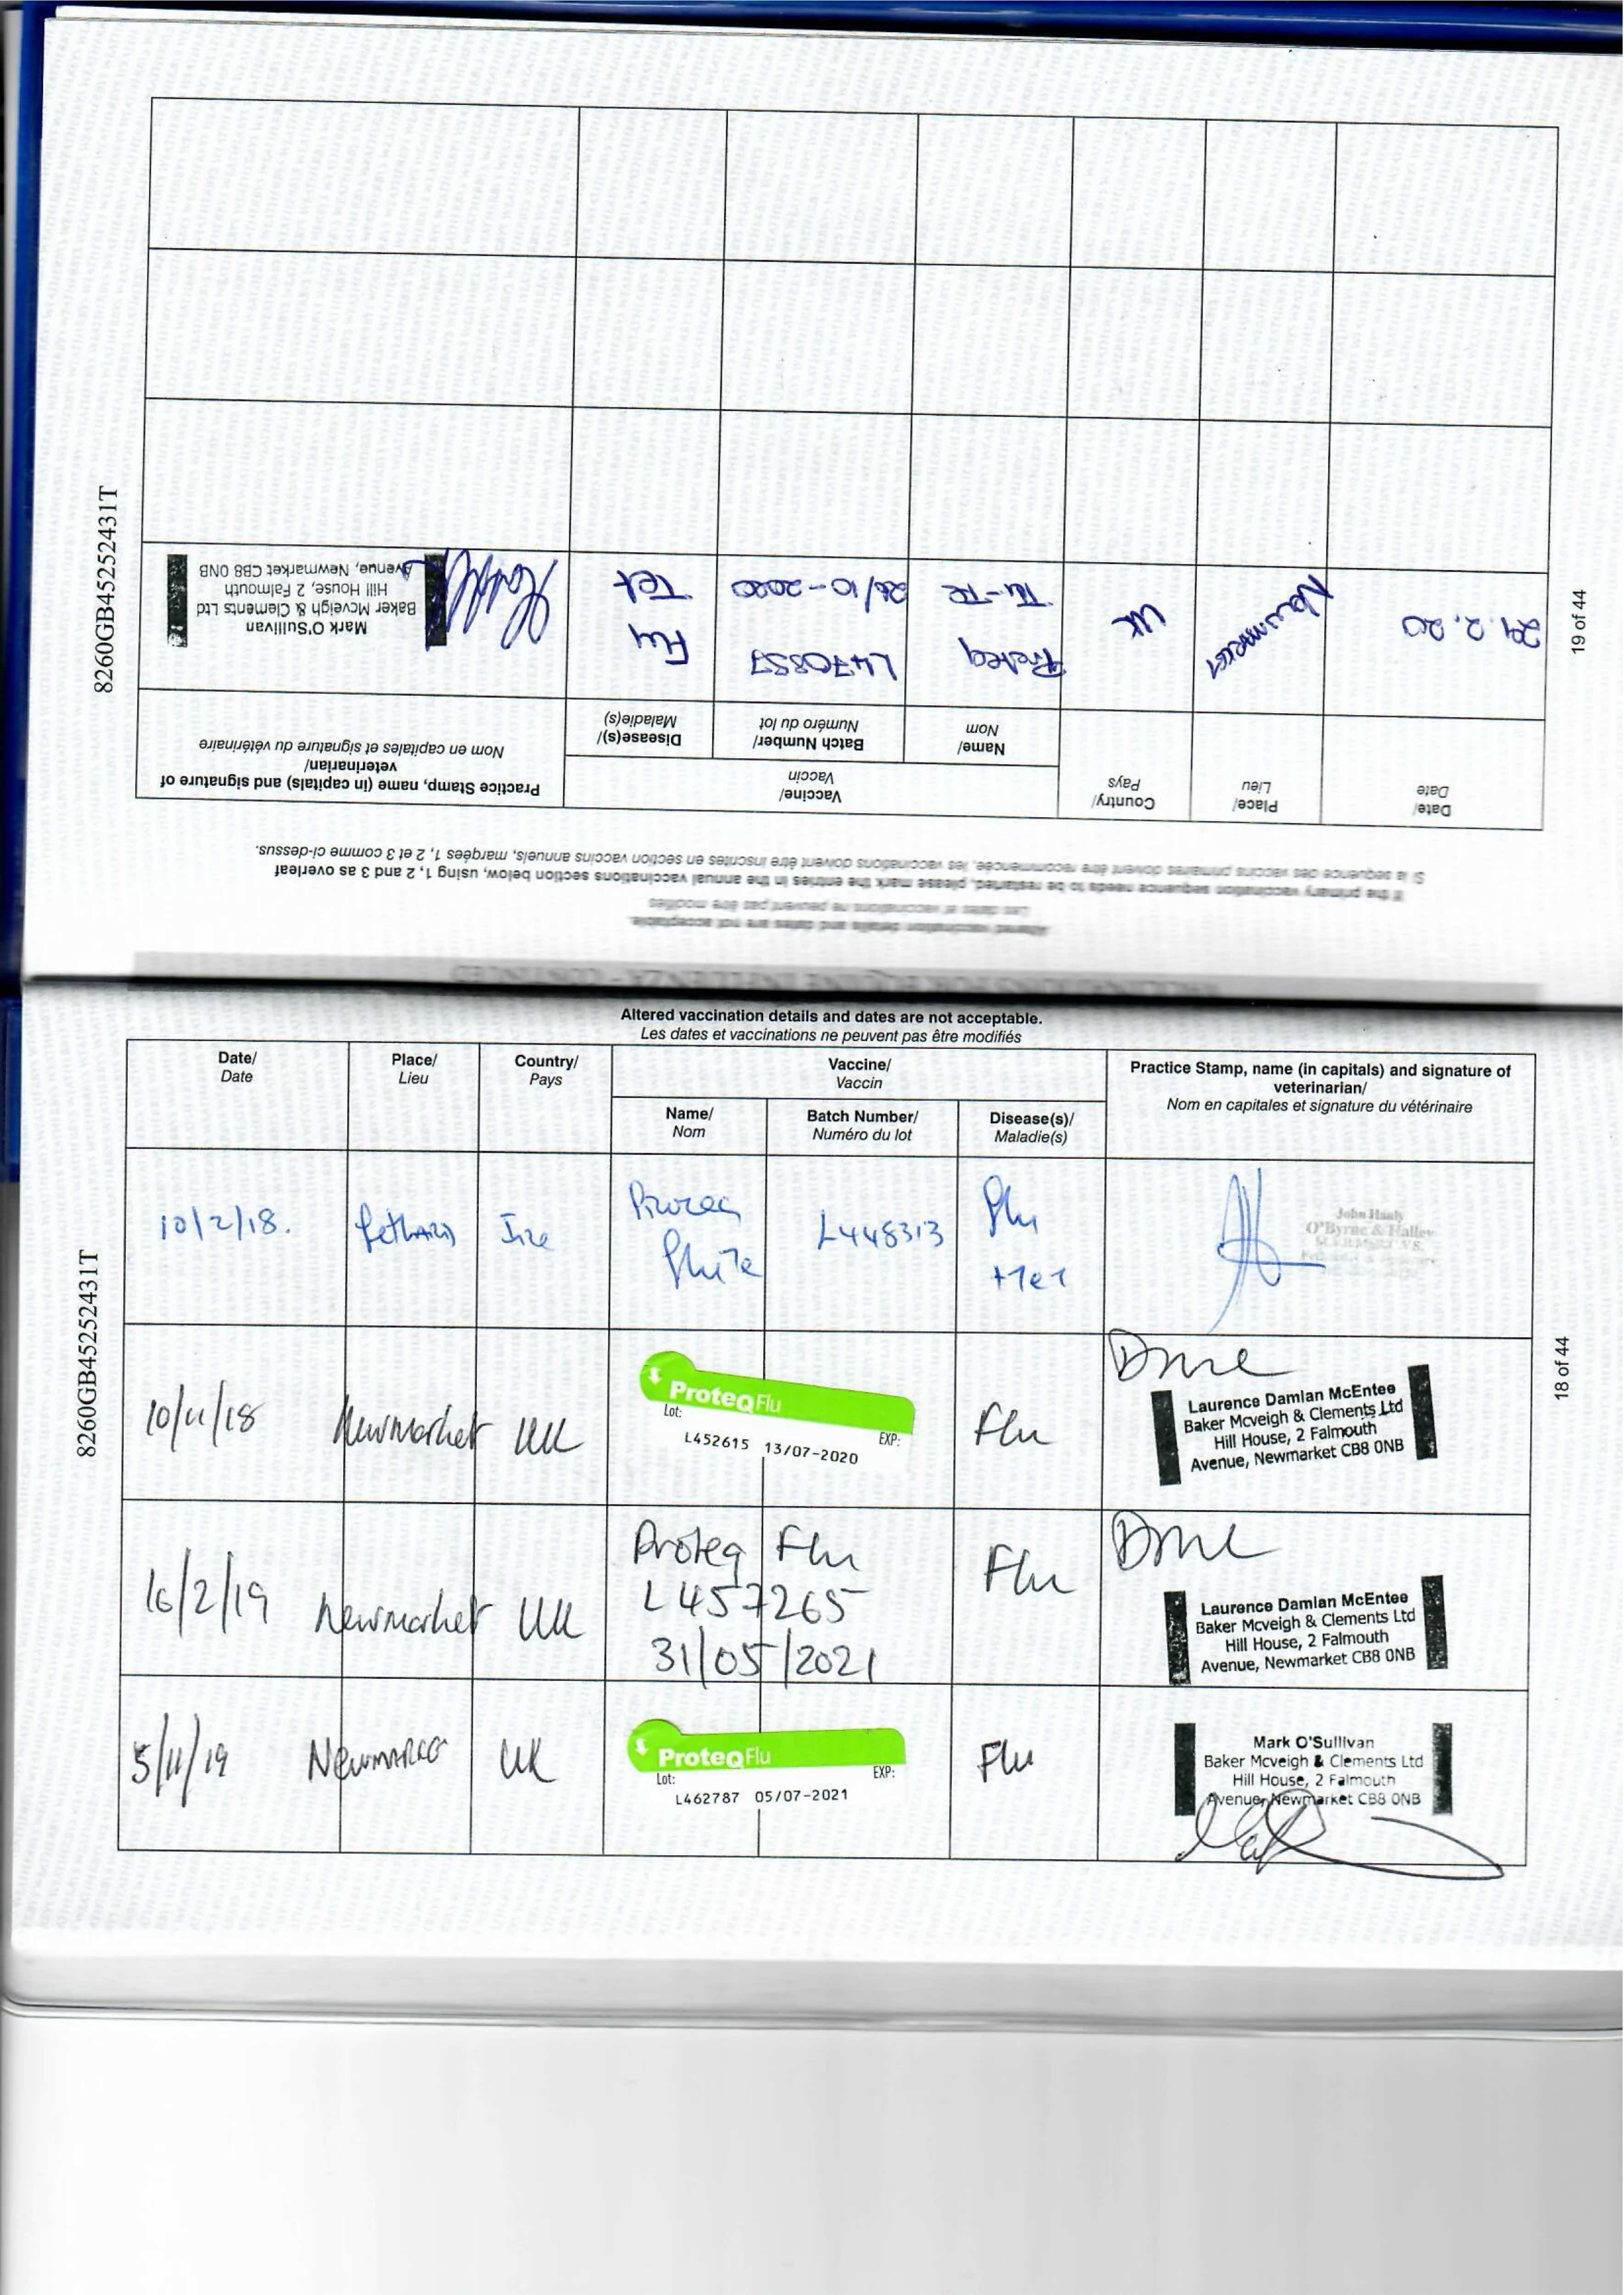 VACCINATIONS FOR EQUINE INFLUENZA - CONTINUED
Altered vaccination details and dates are not acceptable.
Les dates et vaccinations ne peuvent pas être modifiés
If the primary vaccination sequence needs to be restarted, please mark the entries in the annual vaccinations section below, using 1, 2 and 3 as overleaf
Si la séquence des vaccins primaires doivent être recommencée, les vaccinations doivent être inscrites en section vaccins annuels, marqées 1, 2 et 3 comme ci-dessus.
Date/
Date
Place/
Lieu
Country/
Pays
Vaccine/
Vaccin
Name/
Nom
Batch Number/
Numéro du lot
Disease(s)/
Maladie(s)
Practice Stamp, name (in capitals) and signature of
veterinarian/
Nom en capitales et signature du vétérinaire
29.2.20
Newmarket
UK
Proteq
Flu-Te
L470857
26/10-2020
Flu
Tet
Mark O'Sullivan
Baker Mcveigh & Clements Ltd
Hill House, 2 Falmouth
Avenue, Newmarket CB8 0NB
8260GB45252431T
19 of 44
Altered vaccination details and dates are not acceptable.
Les dates et vaccinations ne peuvent pas être modifiés
Date/
Date
Place/
Lieu
Country/
Pays
Vaccine/
Vaccin
Name/
Nom
Batch Number/
Numéro du lot
Disease(s)/
Maladie(s)
Practice Stamp, name (in capitals) and signature of
veterinarian/
Nom en capitales et signature du vétérinaire
10/2/18.
Fethard
Ire
Proteq
FluTe
L448313
Flu
+Tet
John Hanly
O'Byrne & Halley
10/11/18
Newmarket
UK
ProteqFlu
Lot:
EXP:
L452615 13/07-2020
Flu
Laurence Damian McEntee
Baker Mcveigh & Clements Ltd
Hill House, 2 Falmouth
Avenue, Newmarket CB8 0NB
16/2/19
Newmarket
UK
Proteq Flu
L457265
31/05/2021
Flu
Laurence Damian McEntee
Baker Mcveigh & Clements Ltd
Hill House, 2 Falmouth
Avenue, Newmarket CB8 0NB
5/11/19
Newmarket
UK
ProteqFlu
Lot:
EXP:
L462787 05/07-2021
Flu
Mark O'Sullivan
Baker Mcveigh & Clements Ltd
Hill House, 2 Falmouth
Avenue, Newmarket CB8 0NB
8260GB45252431T
18 of 44